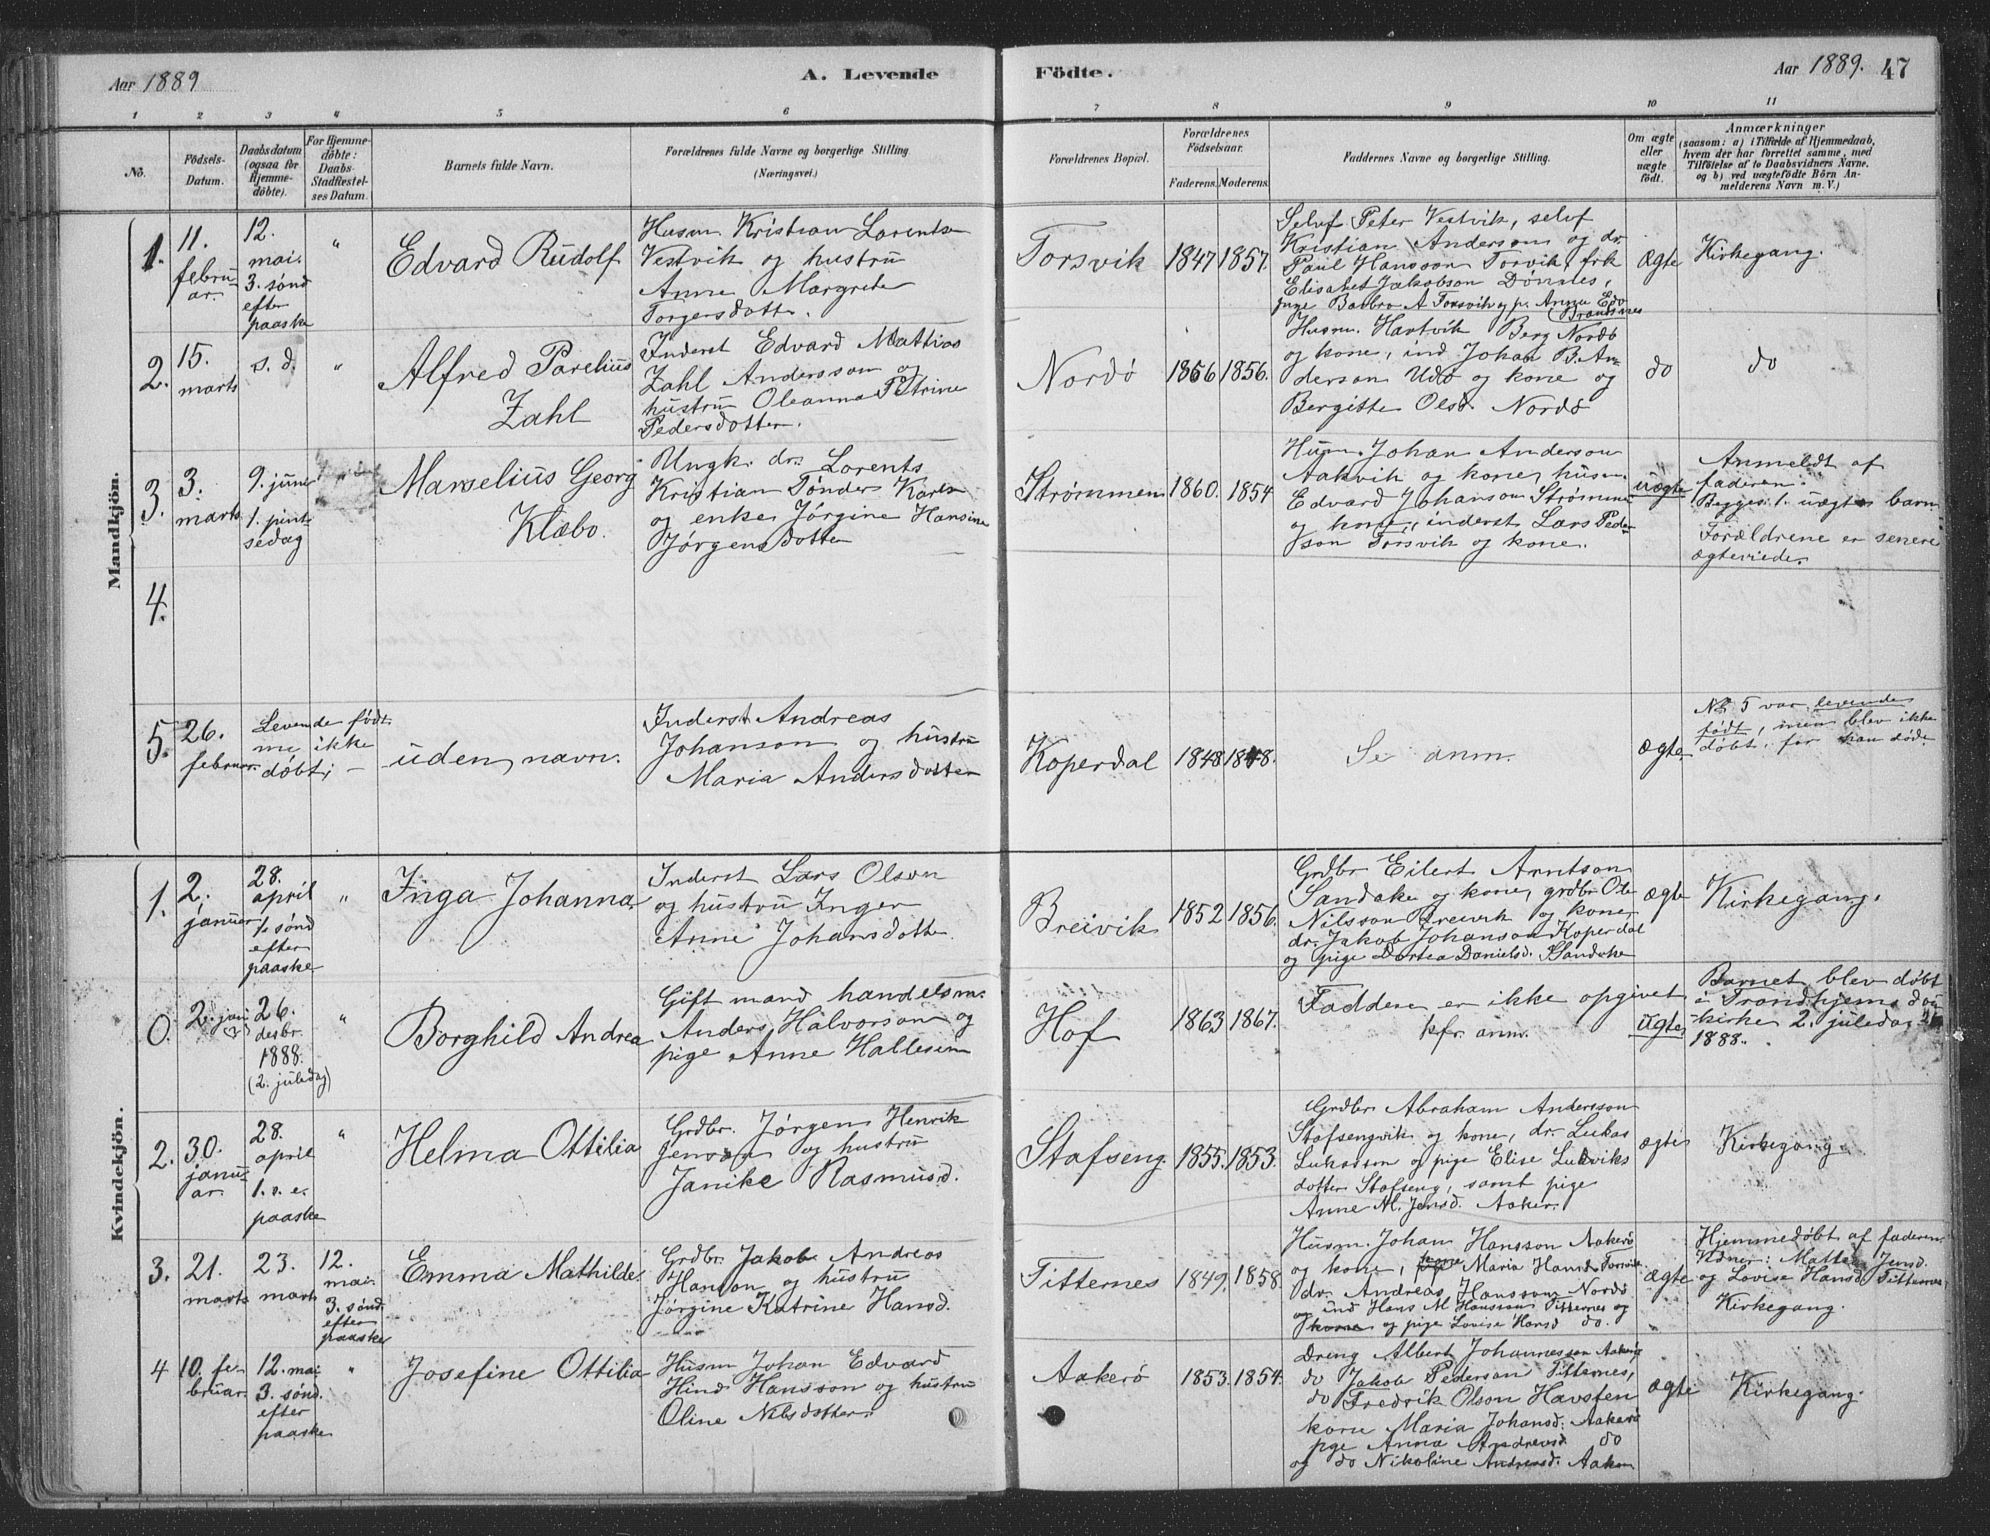 Aar 1889
A. Levende
Födte.
Aar 1889. 47
1 2 3 4 5 6 7 8 9 10 11
No.
Födsels-
Datum.
Daabsdatum
(ogsaa for
Hjemme-
döbte).
For Hjemme-
döbte:
Daabs-
Stadfæstel-
ses Datum.
Barnets fulde Navn.
Forældrenes fulde Navne og borgerlige Stilling
(Næringsvei.)
Forældrenes Bopæl.
Forældrenes
Födselsaar.
Faderens. Moderens.
Faddernes Navne og borgerlige Stilling.
Om ægte
eller
uægte
födt.
Anmærkninger
(saasom: a) i Tilfælde af Hjemmedaab,
hvem der har forrettet samme, med
Tilföielse af to Daabsvidners Navne.
og b) ved uægtefödte Börn An-
melderens Navn m. V.)
Mandkjön.
1.
11.
febru-
ar.
12.
mai.
3. sønd
efter
paaske
"
Edvard Rudolf
Husm. Kristian Lorents
Vestvik og hustru
Anne Margrete
Torgersdotter.
Torsvik
1847 1857.
Selvf. Peter Vestvik, selvf
Kristian Anderson og dr.
Paul Hansson Torvik, frk
Elisabet Jakobson Dønnes,
pige Barbro A Torsvik og p. Anna Edv
Brandsnes
ægte
Kirkegang.
2.
15.
marts
s. d.
"
Alfred Parelius
Zahl
Inderst Edvard Mattias
Zahl Andersson og
hustru Oleanna Petrine
Pedersdotter.
Nordö
1856 1856.
Husm. Hartvik Berg Nordö
og kone, ind Johan B. An-
derson Udö og kone og
Bergitte Olsd Nordö
do
do
3.
3.
marts
9. juni
1. pint-
sedag
Marselius Georg
Klæbo.
Ungk. dr. Lorents
Kristian Tønder Karls
og enke Jørgine Hansine
Jørgensdotter
Strømmen
1860. 1854
Husm. Johan Anderson
Aakvik og kone, husm.
Edvard Johanson Strømmen
og kone, inderst Lars Peder-
son Torsvik og kone.
uægte
Anmeldt af
faderen.
Begges 1. uægte barn
Forældrene er senere
ægteviede.
4.
5.
26.
februar.
Levende født
me ikke
døbt; –
uden navn.
Inderst Andreas
Johanson og hustru
Maria Andersdotter
Koperdal
1848 1848.
Se anm.
ægte
No 5 var levende
født, men blev ikke
døbt, før han døde
Kvindekjön.
1.
2.
januer
28.
april
1. sønd
efter
paaske
"
Inga Johanna
Inderst Lars Olsen
og hustru Inger
Anne Johansdotter
Breivik
1852 1856.
Grdbr Eilert Arntson
Sandake og kone, grdbr Ole
Nilsson Breivik og kone
dr. Jakob Johanson Koperdal
og pige Dortea Danielsd. Sandake
ægte
Kirkegang.
0.
2. jan
26.
desbr.
1888.
(2. juledag)
"
Borghild Andrea
Gift mand handelsm.
Anders Halvorson og
pige Anne Hallesen
Hof
1863 1867.
Faddere er ikke opgivet
kfr. anm.
ugte
Barnet blev døbt
i Trondhjems dom
kirke 2. juledag
1888.
2.
30.
janu-
ar.
28.
april
1. s. e.
paaske
"
Helma Ottilia
Grdbr. Jørgen Henrik
Jenson og hustru
Janike Rasmusd.
Stafseng
1855. 1853.
Grdbr Abraham Andersson
Stafsengvik og kone, dr. Lukas
Lukasson og pige Elise Ludviks
dotter Stafseng, samt pige
Anne M. Jensd. Aaker.
ægte
Kirkegang.
3.
21.
marts
23.
marts
12.
mai.
3. sønd.
efter
paaske
Emma Mathilde
Grdbr. Jakob Andreas
Hanson og hustru
Jørgine Katrine Hansd.
Titternes
1849. 1858.
Husm. Johan Hansson Aakerö
og kone, Maria Hansd Torsvik
dr. Andreas Hansson Nordö
og ind Hans M Hansson Titternes og
kone og pige Lovise Hansd do.
ægte
Hjemmedøbt af faderen.
Vidner: Mattea Jensd.
og Lovise Hansd Titternes
Kirkegang.
4
10. fe-
bruar.
12. mai
3. sønd.
efter
paaske
"
Josefine Ottilia
Husm Johan Edvard
Hind Hansson og hustru
Oline Nilsdotter.
Aakerö
1853. 1854.
Dreng Albert Johannesson Aakerö
do Jakob Pederson Titternes,
do Fredrik Olson Havsten
kone Maria Johansd. Aakerö
pige Anna Andreasd. do
og do Nikoline Andreasd. Aaker
ægte
Kirkegang.